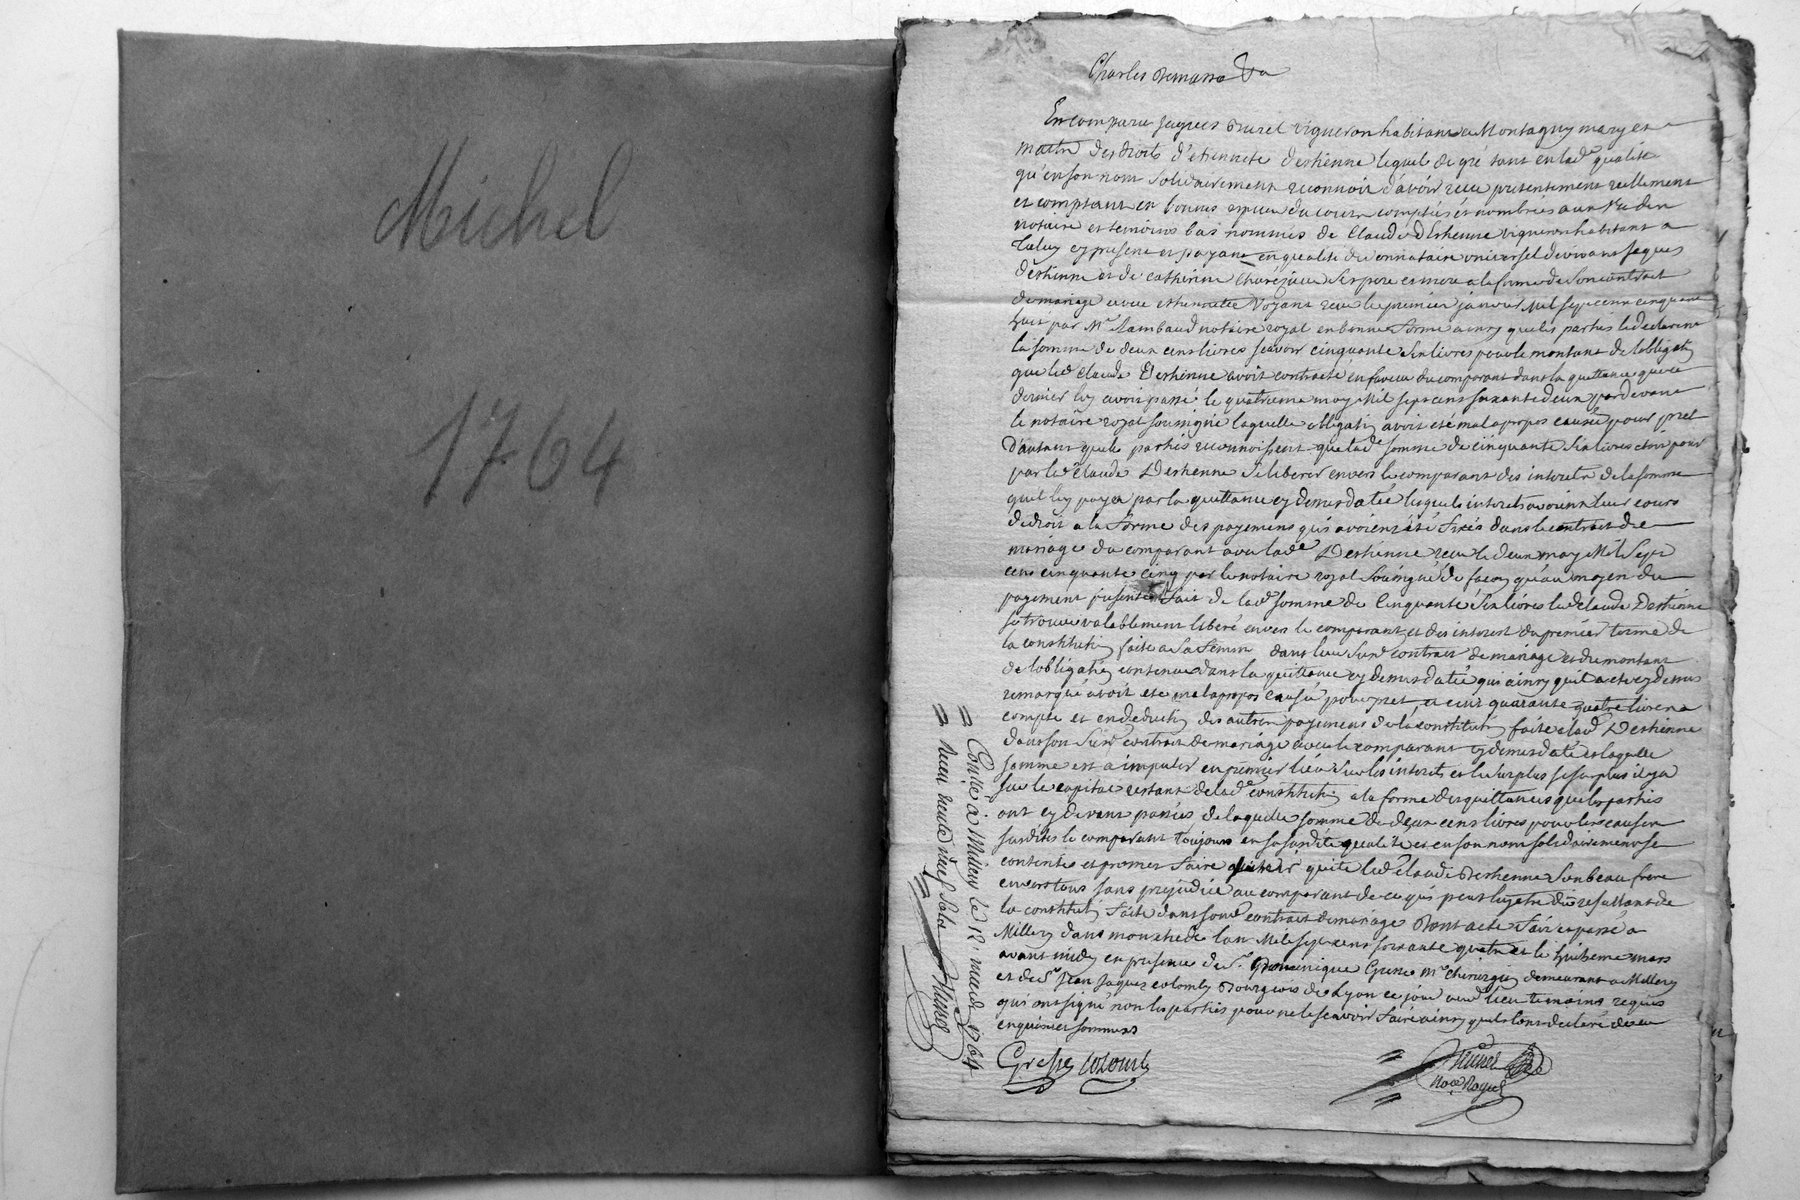 Michel
1764
Charles
Est comparu Jaques Burel vigneron habitant a Montagny mary et
maitre des droits d'etiennete Deshienne lequel de gré tant en lad.e qualité
qu'en son nom solidairement reconnoit d'avoir recu presentement reellement
et comptant en bonnes especes du cours comptées et nombrées a un vû du
notaire et temoins bas nommés de Claude Deshienne vigneron habitant a
Taluy cy present et payant en qualité de donnataire universel de vivant Jaques
Deshienne et de Catherine ses pere et mere a la forme de son contrat
de mariage avec ethiennette Voyant recu le premier janvier Mil sept cent cinquante
huit par M.e Rambaud notaire royal en bonne forme ainsy que les parties le declarent
la somme de deux cens livres scavoir cinquante six livres pour le montant de l'obligati
que led Claude Deshienne avoit contractée en faveur du comparant dans la quittance que ce
dernier luy avoit passé le quatrieme may Mil sept cens soixante deux pardevant
le notaire royal soussigné laquelle obligati avoit eté mal a propos causée pour pret
D'autant que les parties reconnoissent que lad.e somme de cinquante six livres etoit pour
par led Claude Deshienne se liberer envers le comparant des interets de la somme
quil luy paya par la quittance cy dessus datée lesquels interets avoient leur cours
de droit a la forme des payemens qui avoient été fixés dans le contrat de
mariage du comparant avec lad.e Deshienne recu le deux may Mil sept
cens cinquante cinq par le notaire royal soussigné de facon qu'au moyen du
payement presentem.t fait de lad.e somme de cinquante six livres led Claude Deshienne
se trouve valablement liberé envers le comparant et des interest du premier terme de
la constituti faite a sa femme dans leur susd contrat de mariage et du montant
de l'obligati contenue dans la quittance cy dessus datée qui ainsy quil a eté cy dessus
remarqué avoit eté mal a propos causée pour pret, et cent quarante quatre livres a
compte et en deducti des autres payemens de la constituti faite a lad Deshienne
dans son susd contrat de mariage avec le comparant cy dessus daté et laquelle
somme est a imputer en premier lieu sur les interets et le surplus si surplus il y a
sur le capital restant de lad.e constituti a la forme des quittances que les parties
ont cy devant passées de laquelle somme de deux cens livres pour les causes
susdites le comparant toujours en sa susdite qualité et en son nom solidairement se
contente et promet faire quitte led Claude Deshienne son beau frere
envers tous sans prejudice au comparant de ce qui peut luy etre dû resultant de
la constituti faite dans sond contrat de mariage Dont acte fait et passé a
Millery dans mon etude l'an Mil sept cens soixante quatre et le huitieme mars
avant midy en presence de S.r Dominique Grene m.e chirurgi demeurant a Millery
et de S.r Jean Jaques Colomb Bourgeois de Lyon ce jour aud lieu temoins requis
qui ont signé non les parties pour ne le scavoir faire ainsy quils l'ont declaré de ce
enquis et sommés
Colomb
Michel
No.re Royal
Con.llé a Millery le 12 mars 1764
Recu